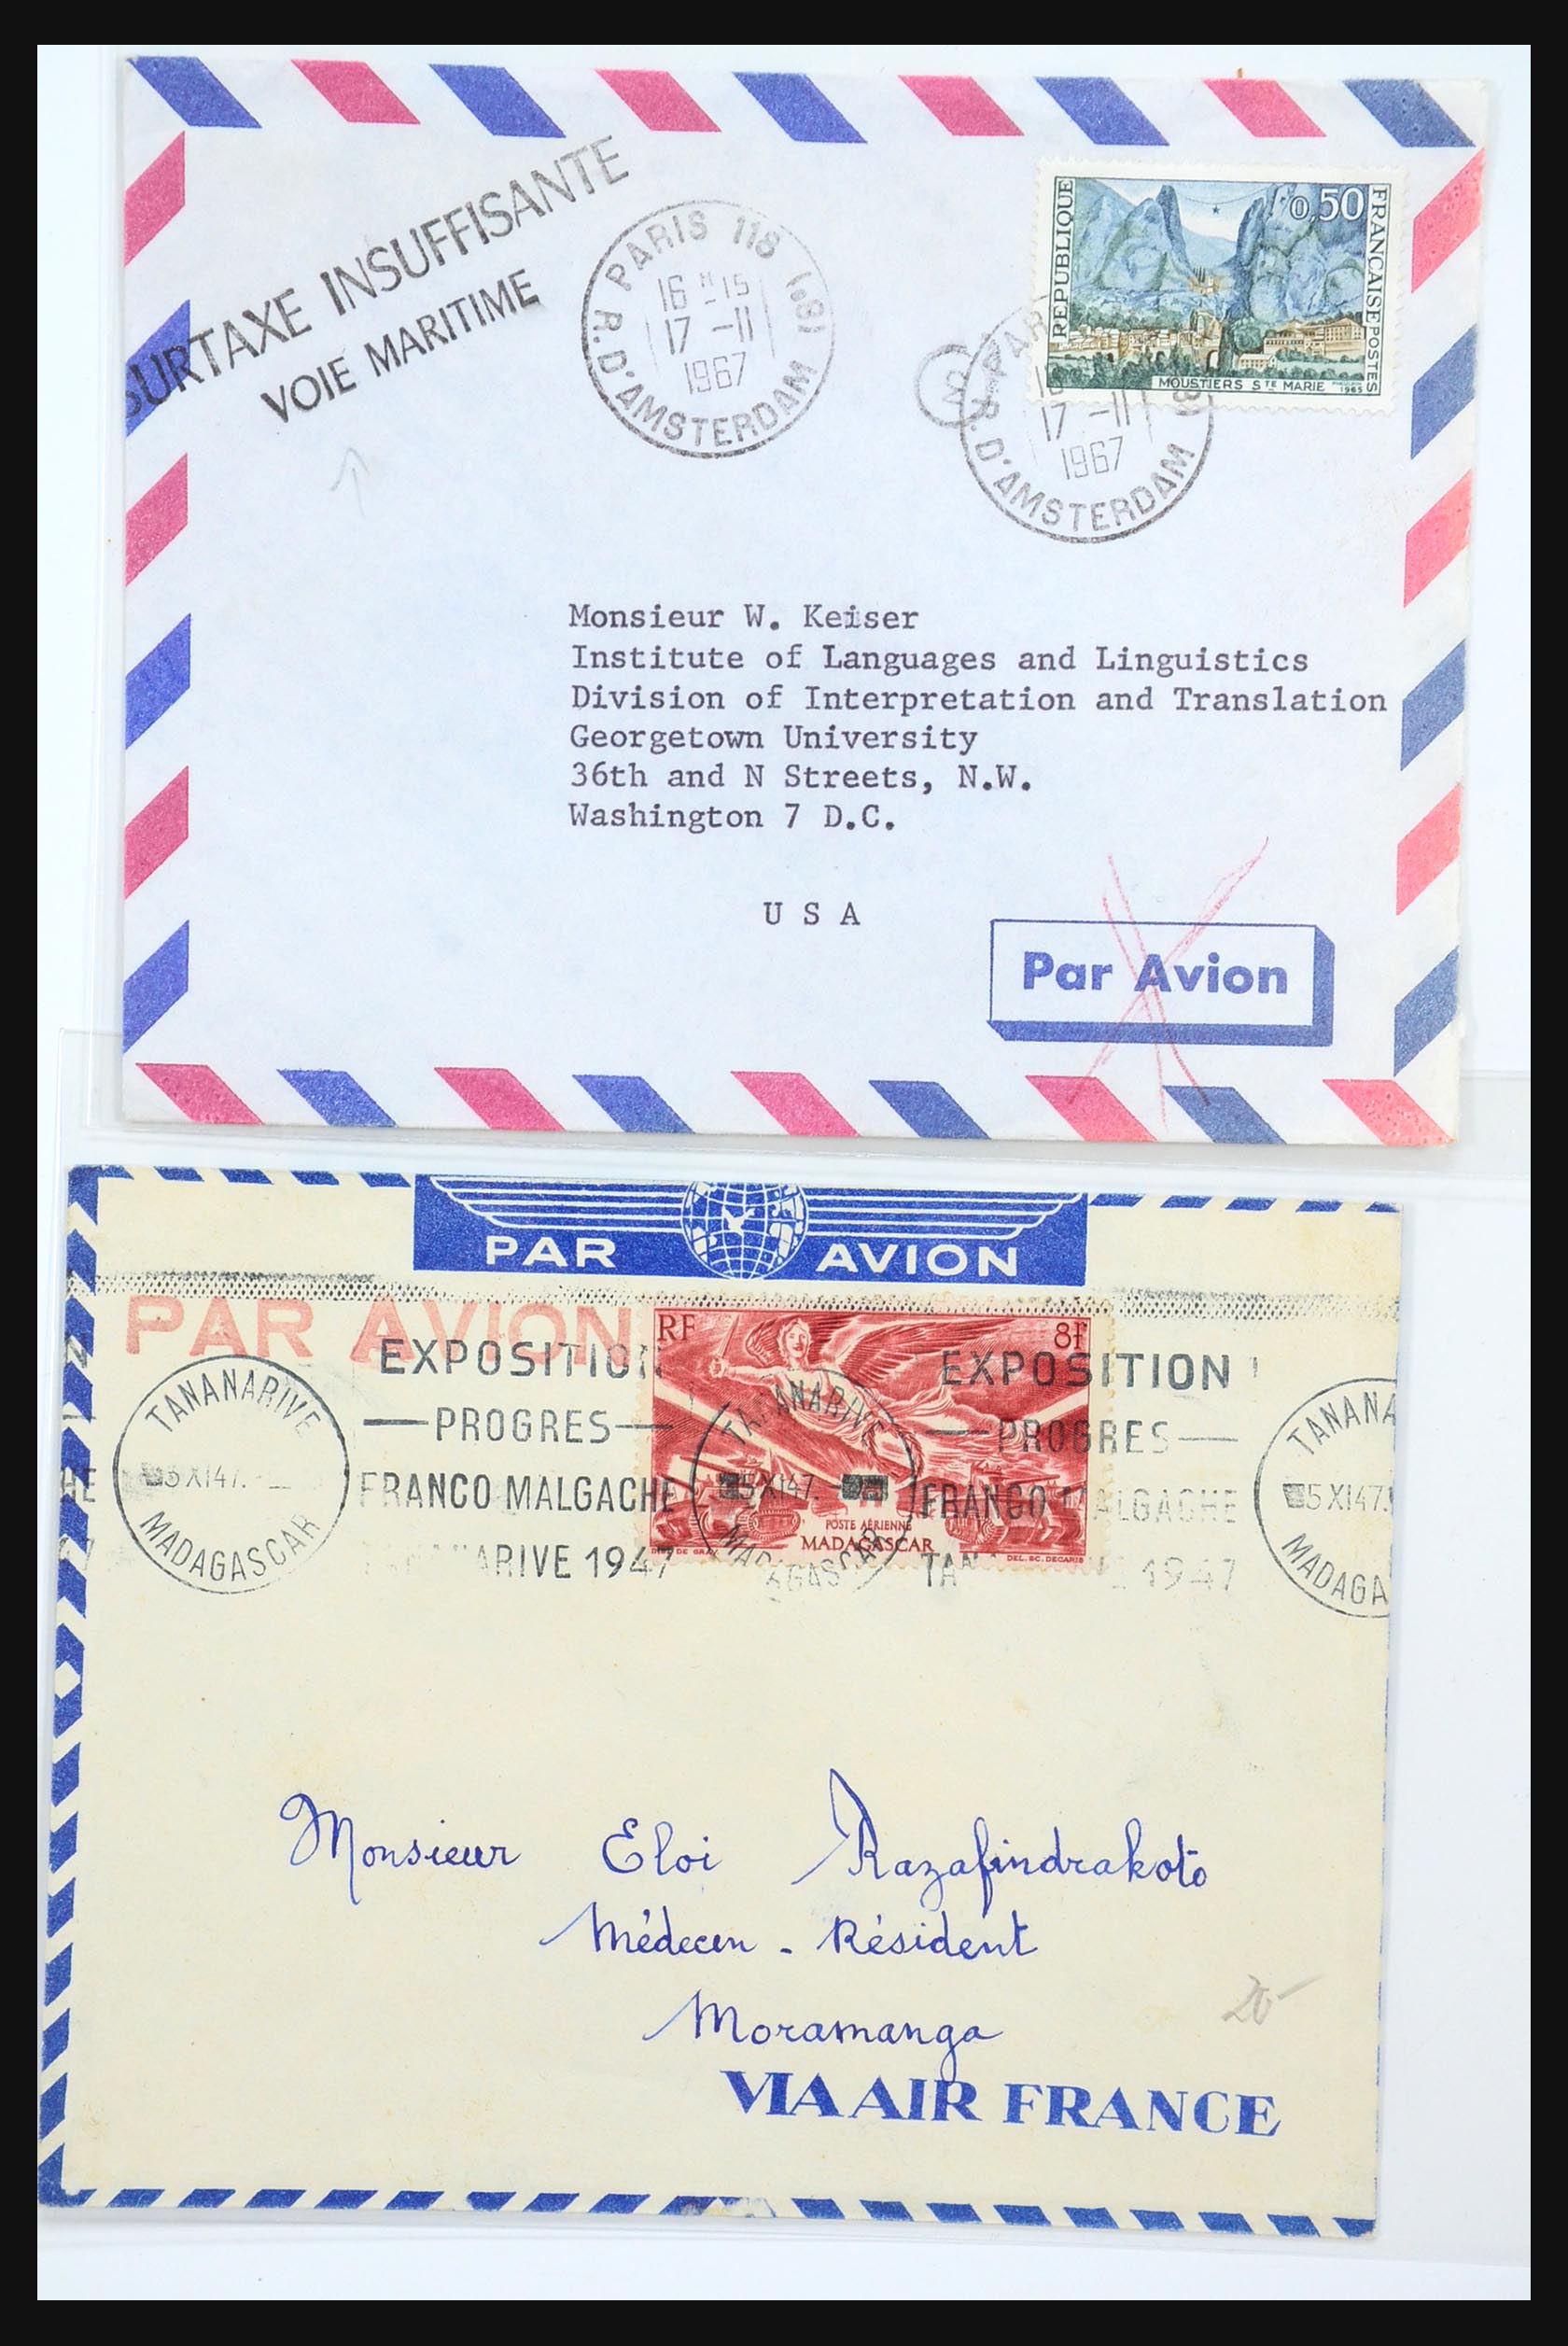 SURTAXE INSUFFISANTE
VOIE MARITIME
PARIS 118
16 H 15
17 -11
1967
R. D'AMSTERDAM
REPUBLIQUE FRANCAISE POSTES
0,50
MOUSTIERS STE MARIE 1965
17 -11
1967
R. D'AMSTERDAM
Monsieur W. Keiser
Institute of Languages and Linguistics
Division of Interpretation and Translation
Georgetown University
36th and N Streets, N.W.
Washington 7 D.C.
U S A
Par Avion
PAR AVION
PAR AVION
RF 8f
POSTE AÉRIENNE
MADAGASCAR
DEL. SC. DECARIS
TANANARIVE
5 XI 47
MADAGASCAR
EXPOSITION
PROGRES
FRANCO MALGACHE
TANANARIVE 1947
TANANARIVE
5 XI 47
MADAGASCAR
EXPOSITION
PROGRES
FRANCO MALGACHE
1947
TANANA
5 XI 47
MADAGA
Monsieur Eloi Razafindrakoto
Médecin - Résident
Moramanga
VIA AIR FRANCE